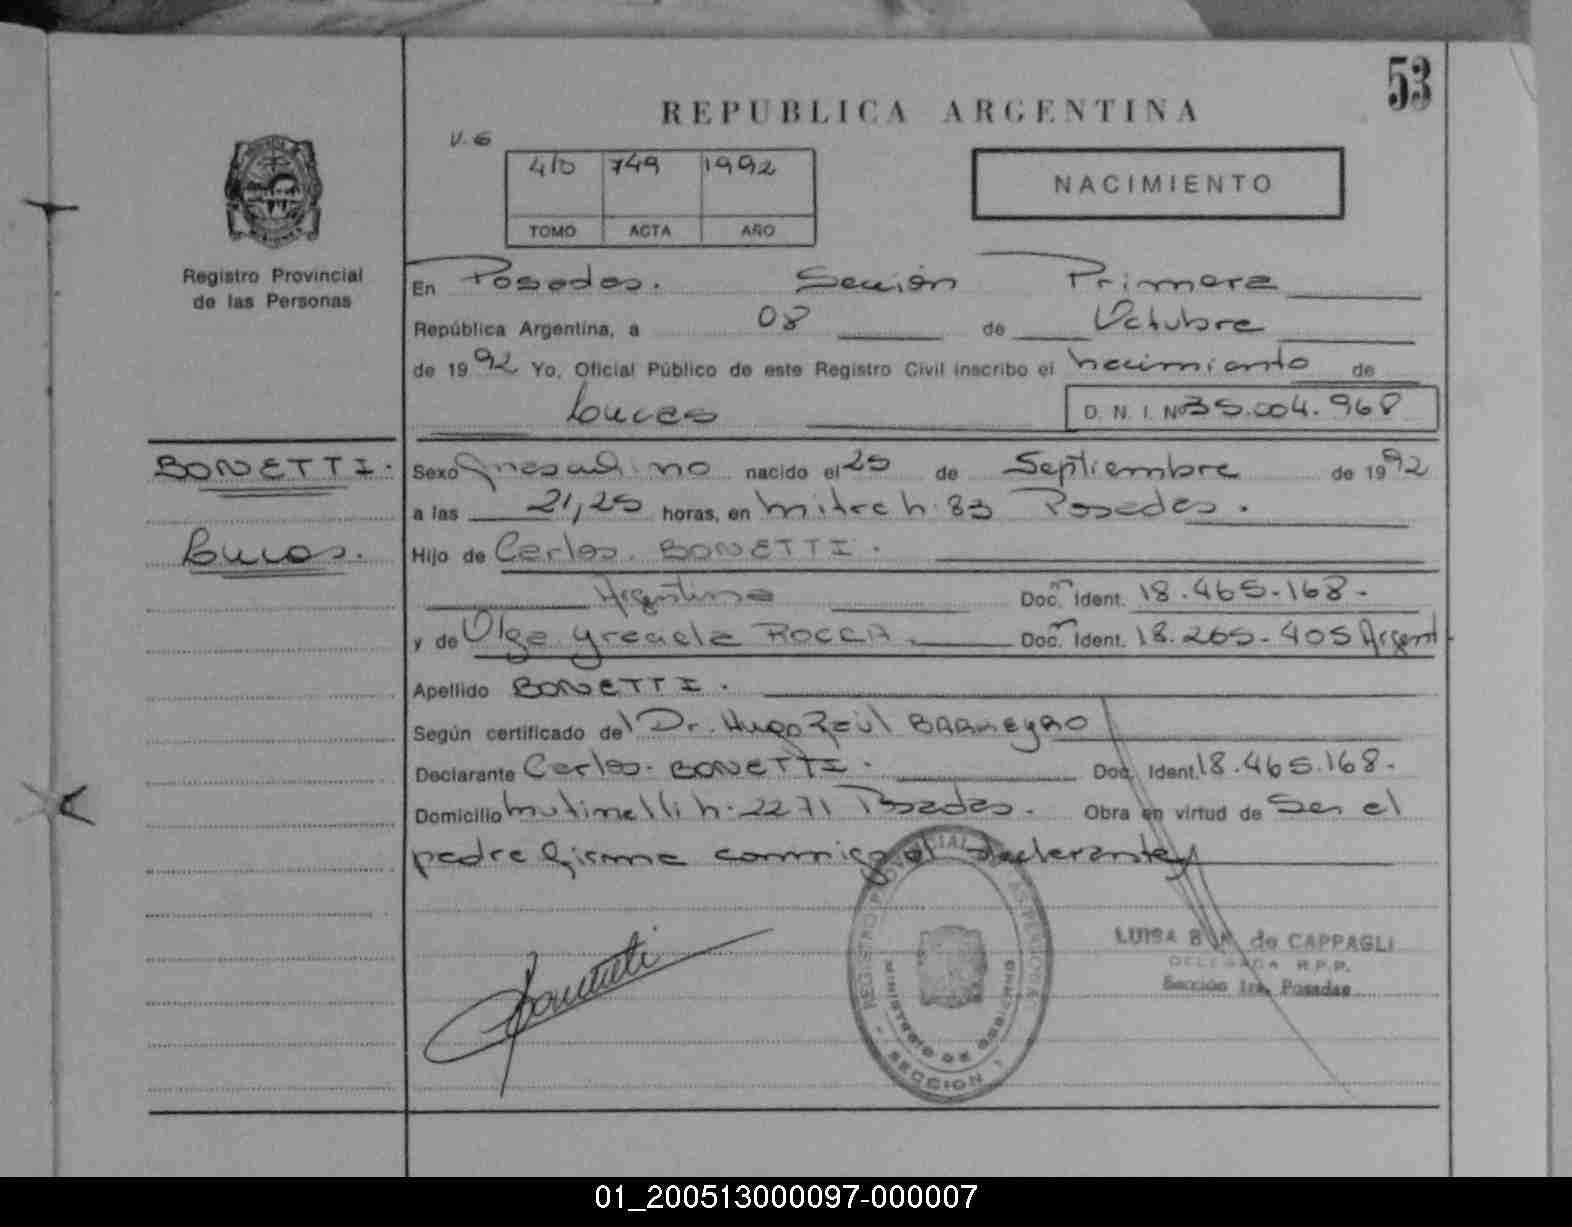 53
REPUBLICA ARGENTINA
V. 6
4/0 749 1992
TOMO ACTA AÑO
NACIMIENTO
Registro Provincial
de las Personas
En Posadas. Sección Primera
República Argentina, a 08 de Octubre
de 1992 Yo, Oficial Público de este Registro Civil inscribo el nacimiento de
Lucas D. N. I. Nº 35.004.968
BONETTI.
Lucas.
Sexo masculino nacido el 25 de Septiembre de 1992
a las 21,25 horas, en mitre n. 83 Posadas.
Hijo de Carlos. BONETTI.
Argentina Doc. Ident. 18.465.168-
y de Olga Graciela ROCCA. Doc. Ident. 18.265-405 Argent
Apellido BONETTI.
Según certificado del Dr. Hugo Raúl BARNEYRO
Declarante Carlos. BONETTI. Doc. Ident. 18.465.168-
Domicilio mutinelli n. 2271 Posadas. Obra en virtud de Ser el
padre firma conmigo el declarante
REGISTRO PROVINCIAL DE LAS PERSONAS
MINISTERIO DE GOBIERNO
- SECCION 1
LUISA de CAPPAGLI
DELEGADA R.P.P.
Sección 1ra. Posadas
01_200513000097-000007